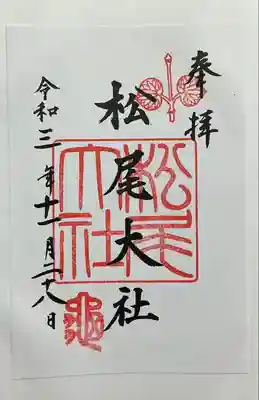 奉拝
松尾大社
松尾大社
令和三年十一月二十八日